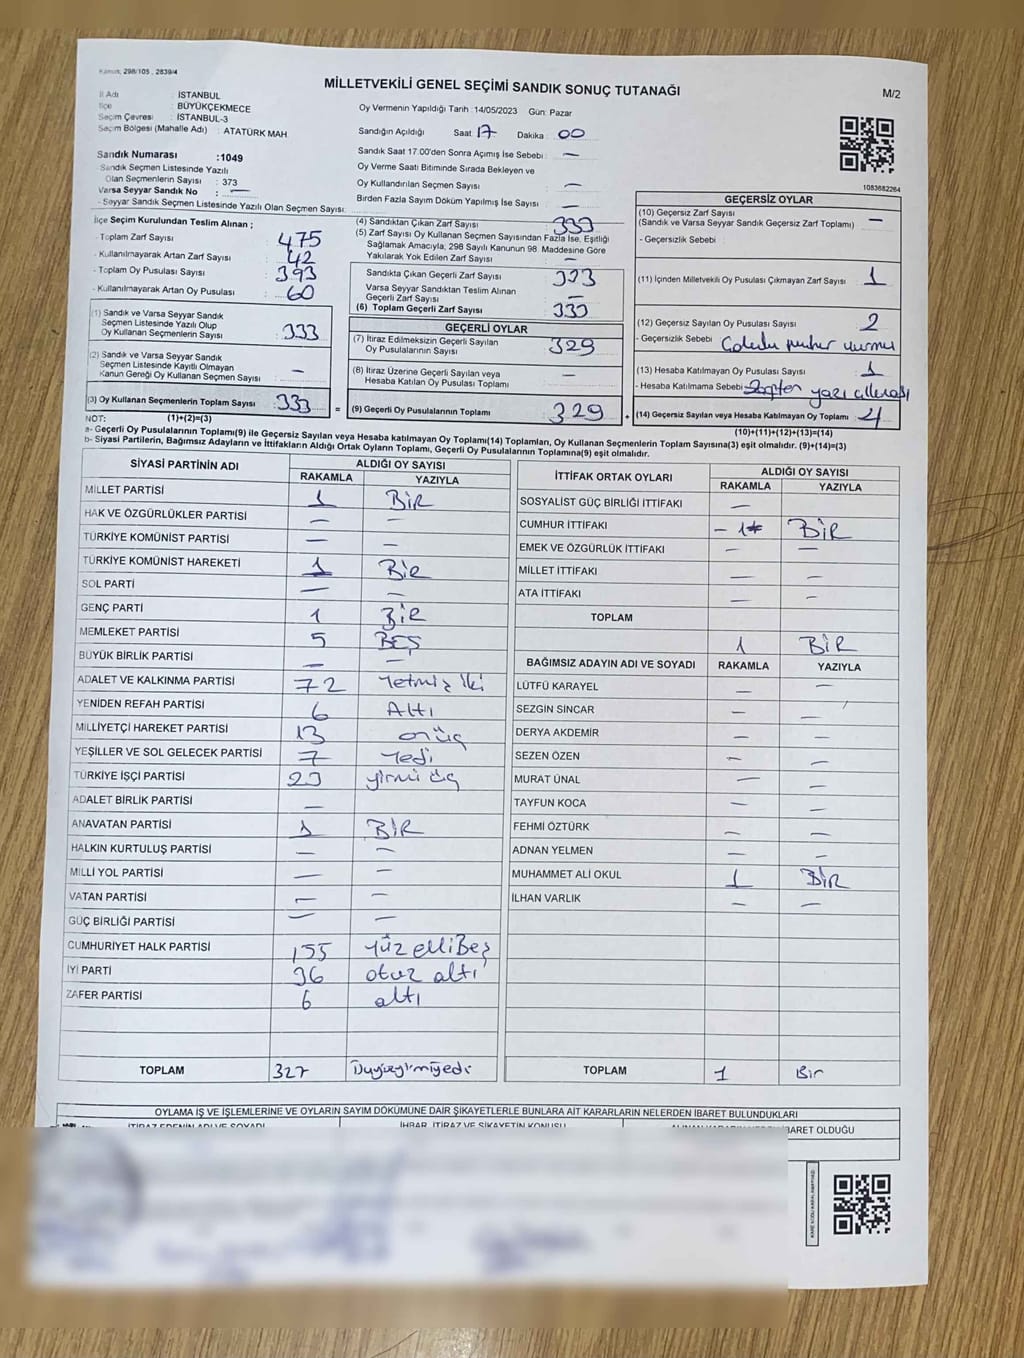 Kanun; 298/105 , 2839/4
MİLLETVEKİLİ GENEL SEÇİMİ SANDIK SONUÇ TUTANAĞI
M/2
İl Adı : İSTANBUL
İlçe : BÜYÜKÇEKMECE
Seçim Çevresi : İSTANBUL-3
Seçim Bölgesi (Mahalle Adı) : ATATÜRK MAH.
Sandık Numarası :1049
- Sandık Seçmen Listesinde Yazılı
Olan Seçmenlerin Sayısı : 373
Varsa Seyyar Sandık No : —
- Seyyar Sandık Seçmen Listesinde Yazılı Olan Seçmen Sayısı:
Oy Vermenin Yapıldığı Tarih :14/05/2023 Gün: Pazar
Sandığın Açıldığı Saat: 17 Dakika : 00
Sandık Saat 17.00'den Sonra Açımış İse Sebebi : —
Oy Verme Saati Bitiminde Sırada Bekleyen ve
Oy Kullandırılan Seçmen Sayısı : —
Birden Fazla Sayım Döküm Yapılmış İse Sayısı : —
1083682264
İlçe Seçim Kurulundan Teslim Alınan ;
- Toplam Zarf Sayısı : 475
- Kullanılmayarak Artan Zarf Sayısı : 42
- Toplam Oy Pusulası Sayısı : 393
- Kullanılmayarak Artan Oy Pusulası : 60
(1) Sandık ve Varsa Seyyar Sandık
Seçmen Listesinde Yazılı Olup
Oy Kullanan Seçmenlerin Sayısı : 333
(2) Sandık ve Varsa Seyyar Sandık
Seçmen Listesinde Kayıtlı Olmayan
Kanun Gereği Oy Kullanan Seçmen Sayısı : —
(3) Oy Kullanan Seçmenlerin Toplam Sayısı : 333
(4) Sandıktan Çıkan Zarf Sayısı : 333
(5) Zarf Sayısı Oy Kullanan Seçmen Sayısından Fazla İse, Eşitliği
Sağlamak Amacıyla; 298 Sayılı Kanunun 98. Maddesine Göre
Yakılarak Yok Edilen Zarf Sayısı : —
Sandıkta Çıkan Geçerli Zarf Sayısı : 333
Varsa Seyyar Sandıktan Teslim Alınan
Geçerli Zarf Sayısı : —
(6) Toplam Geçerli Zarf Sayısı : 333
GEÇERLİ OYLAR
(7) İtiraz Edilmeksizin Geçerli Sayılan
Oy Pusulalarının Sayısı : 329
(8) İtiraz Üzerine Geçerli Sayılan veya
Hesaba Katılan Oy Pusulası Toplamı : —
= (9) Geçerli Oy Pusulalarının Toplamı : 329
GEÇERSİZ OYLAR
(10) Geçersiz Zarf Sayısı
(Sandık ve Varsa Seyyar Sandık Geçersiz Zarf Toplamı) : —
- Geçersizlik Sebebi :
(11) İçinden Milletvekili Oy Pusulası Çıkmayan Zarf Sayısı : 1
(12) Geçersiz Sayılan Oy Pusulası Sayısı : 2
- Geçersizlik Sebebi :
(13) Hesaba Katılmayan Oy Pusulası Sayısı : 1
- Hesaba Katılmama Sebebi : yazı
(14) Geçersiz Sayılan veya Hesaba Katılmayan Oy Toplamı : 4
NOT: (1)+(2)=(3)
(10)+(11)+(12)+(13)=(14)
a- Geçerli Oy Pusulalarının Toplamı(9) ile Geçersiz Sayılan veya Hesaba katılmayan Oy Toplamı(14) Toplamları, Oy Kullanan Seçmenlerin Toplam Sayısına(3) eşit olmalıdır. (9)+(14)=(3)
b- Siyasi Partilerin, Bağımsız Adayların ve İttifakların Aldığı Ortak Oyların Toplamı, Geçerli Oy Pusulalarının Toplamına(9) eşit olmalıdır.
SİYASİ PARTİNİN ADI ALDIĞI OY SAYISI
RAKAMLA YAZIYLA
MİLLET PARTİSİ 1 BİR
HAK VE ÖZGÜRLÜKLER PARTİSİ — —
TÜRKİYE KOMÜNİST PARTİSİ — —
TÜRKİYE KOMÜNİST HAREKETİ 1 Bir
SOL PARTİ — —
GENÇ PARTİ 1 BİR
MEMLEKET PARTİSİ 5 BEŞ
BÜYÜK BİRLİK PARTİSİ — —
ADALET VE KALKINMA PARTİSİ 72 Yetmiş iki
YENİDEN REFAH PARTİSİ 6 Altı
MİLLİYETÇİ HAREKET PARTİSİ 13 onüç
YEŞİLLER VE SOL GELECEK PARTİSİ 7 Yedi
TÜRKİYE İŞÇİ PARTİSİ 23 yirmi üç
ADALET BİRLİK PARTİSİ —
ANAVATAN PARTİSİ 1 BİR
HALKIN KURTULUŞ PARTİSİ — —
MİLLİ YOL PARTİSİ — —
VATAN PARTİSİ — —
GÜÇ BİRLİĞİ PARTİSİ — —
CUMHURİYET HALK PARTİSİ 155 Yüz elliBeş
İYİ PARTİ 36 otuz altı
ZAFER PARTİSİ 6 altı
TOPLAM 327 Üçyüzyirmiyedi
İTTİFAK ORTAK OYLARI ALDIĞI OY SAYISI
RAKAMLA YAZIYLA
SOSYALİST GÜÇ BİRLİĞİ İTTİFAKI —
CUMHUR İTTİFAKI 1 BİR
EMEK VE ÖZGÜRLÜK İTTİFAKI — —
MİLLET İTTİFAKI — —
ATA İTTİFAKI — —
TOPLAM
1 BİR
BAĞIMSIZ ADAYIN ADI VE SOYADI RAKAMLA YAZIYLA
LÜTFÜ KARAYEL — —
SEZGİN SİNCAR — —
DERYA AKDEMİR — —
SEZEN ÖZEN — —
MURAT ÜNAL — —
TAYFUN KOCA — —
FEHMİ ÖZTÜRK — —
ADNAN YELMEN — —
MUHAMMET ALİ OKUL 1 BİR
İLHAN VARLIK — —
TOPLAM 1 Bir
OYLAMA İŞ VE İŞLEMLERİNE VE OYLARIN SAYIM DÖKÜMÜNE DAİR ŞİKAYETLERLE BUNLARA AİT KARARLARIN NELERDEN İBARET BULUNDUKLARI
İTİRAZ EDENİN ADI VE SOYADI İHBAR, İTİRAZ VE ŞİKAYETİN KONUSU İBARET OLDUĞU